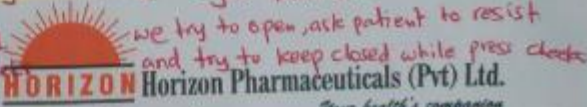 we try to open, ask patient to resist
and try to keep closed while press cheeks
HORIZON Horizon Pharmaceuticals (Pvt) Ltd.
Your health's companion